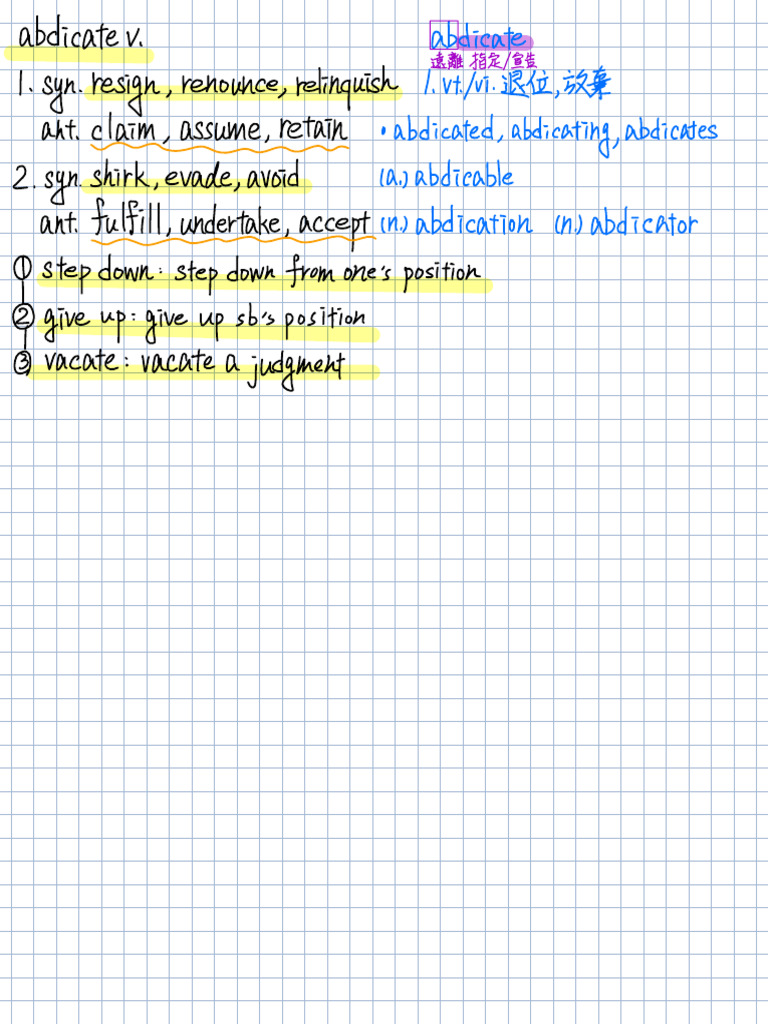 abdicate v.
abdicate
遠離 指定/宣告
1. syn. resign, renounce, relinquish
1. vt./vi. 退位, 放棄
ant. claim, assume, retain
• abdicated, abdicating, abdicates
2. syn. shirk, evade, avoid
(a.) abdicable
ant. fulfill, undertake, accept
(n.) abdication (n.) abdicator
① step down: step down from one's position
② give up: give up sb's position
③ vacate: vacate a judgment